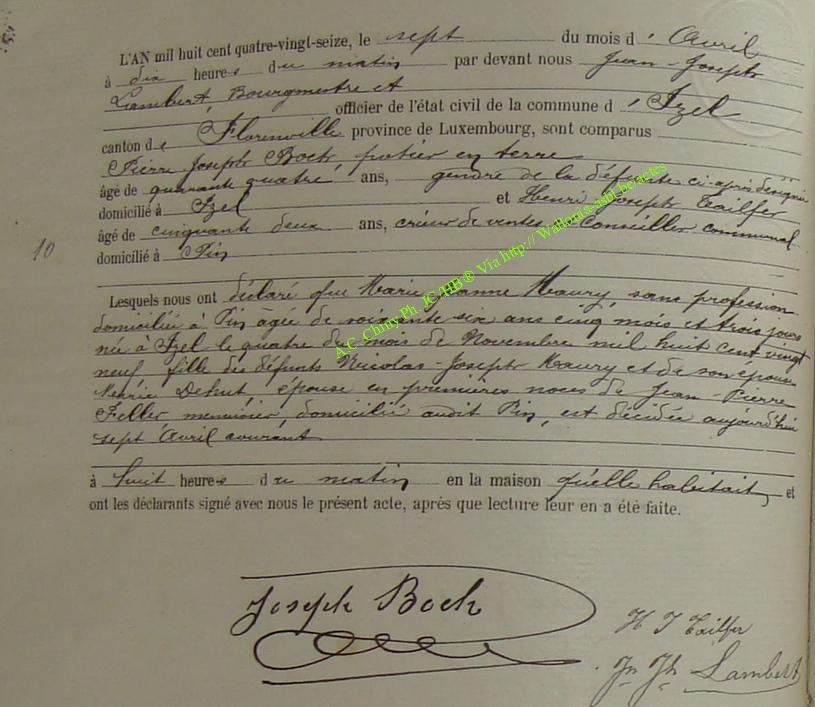 L'AN mil huit cent quatre-vingt-seize, le sept du mois d'Avril
à dix heures du matin par devant nous Jean-Joseph
Lambert, Bourgmestre et
officier de l'état civil de la commune d'Izel
canton de Florenville province de Luxembourg, sont comparus
Pierre Joseph Boch, potier en terre
âgé de quarante quatre ans, gendre de la défunte ci-après désignée
domicilié à Izel et Henri Joseph Tailfer
âgé de cinquante deux ans, crieur de ventes, Conseiller communal
domicilié à Pin
10
Lesquels nous ont déclaré que Marie Jeanne Maury, sans profession
domiciliée à Pin âgée de soixante six ans cinq mois et trois jours
née à Izel le quatre du mois de Novembre mil huit cent vingt
neuf fille des défunts Nicolas-Joseph Maury et de son épouse
Marie Dehut, épouse en premières noces de Jean-Pierre
Feller menuisier, domicilié audit Pin, est décédée aujourd'hui
sept Avril courant
à huit heures du matin en la maison qu'elle habitait, et
ont les déclarants signé avec nous le présent acte, après que lecture leur en a été faite.
Joseph Boch
H J Tailfer
Jn Jh Lambert
A.C. Chiny Ph JC/HB ® Via http:// Wallonia-asbl.be/actes